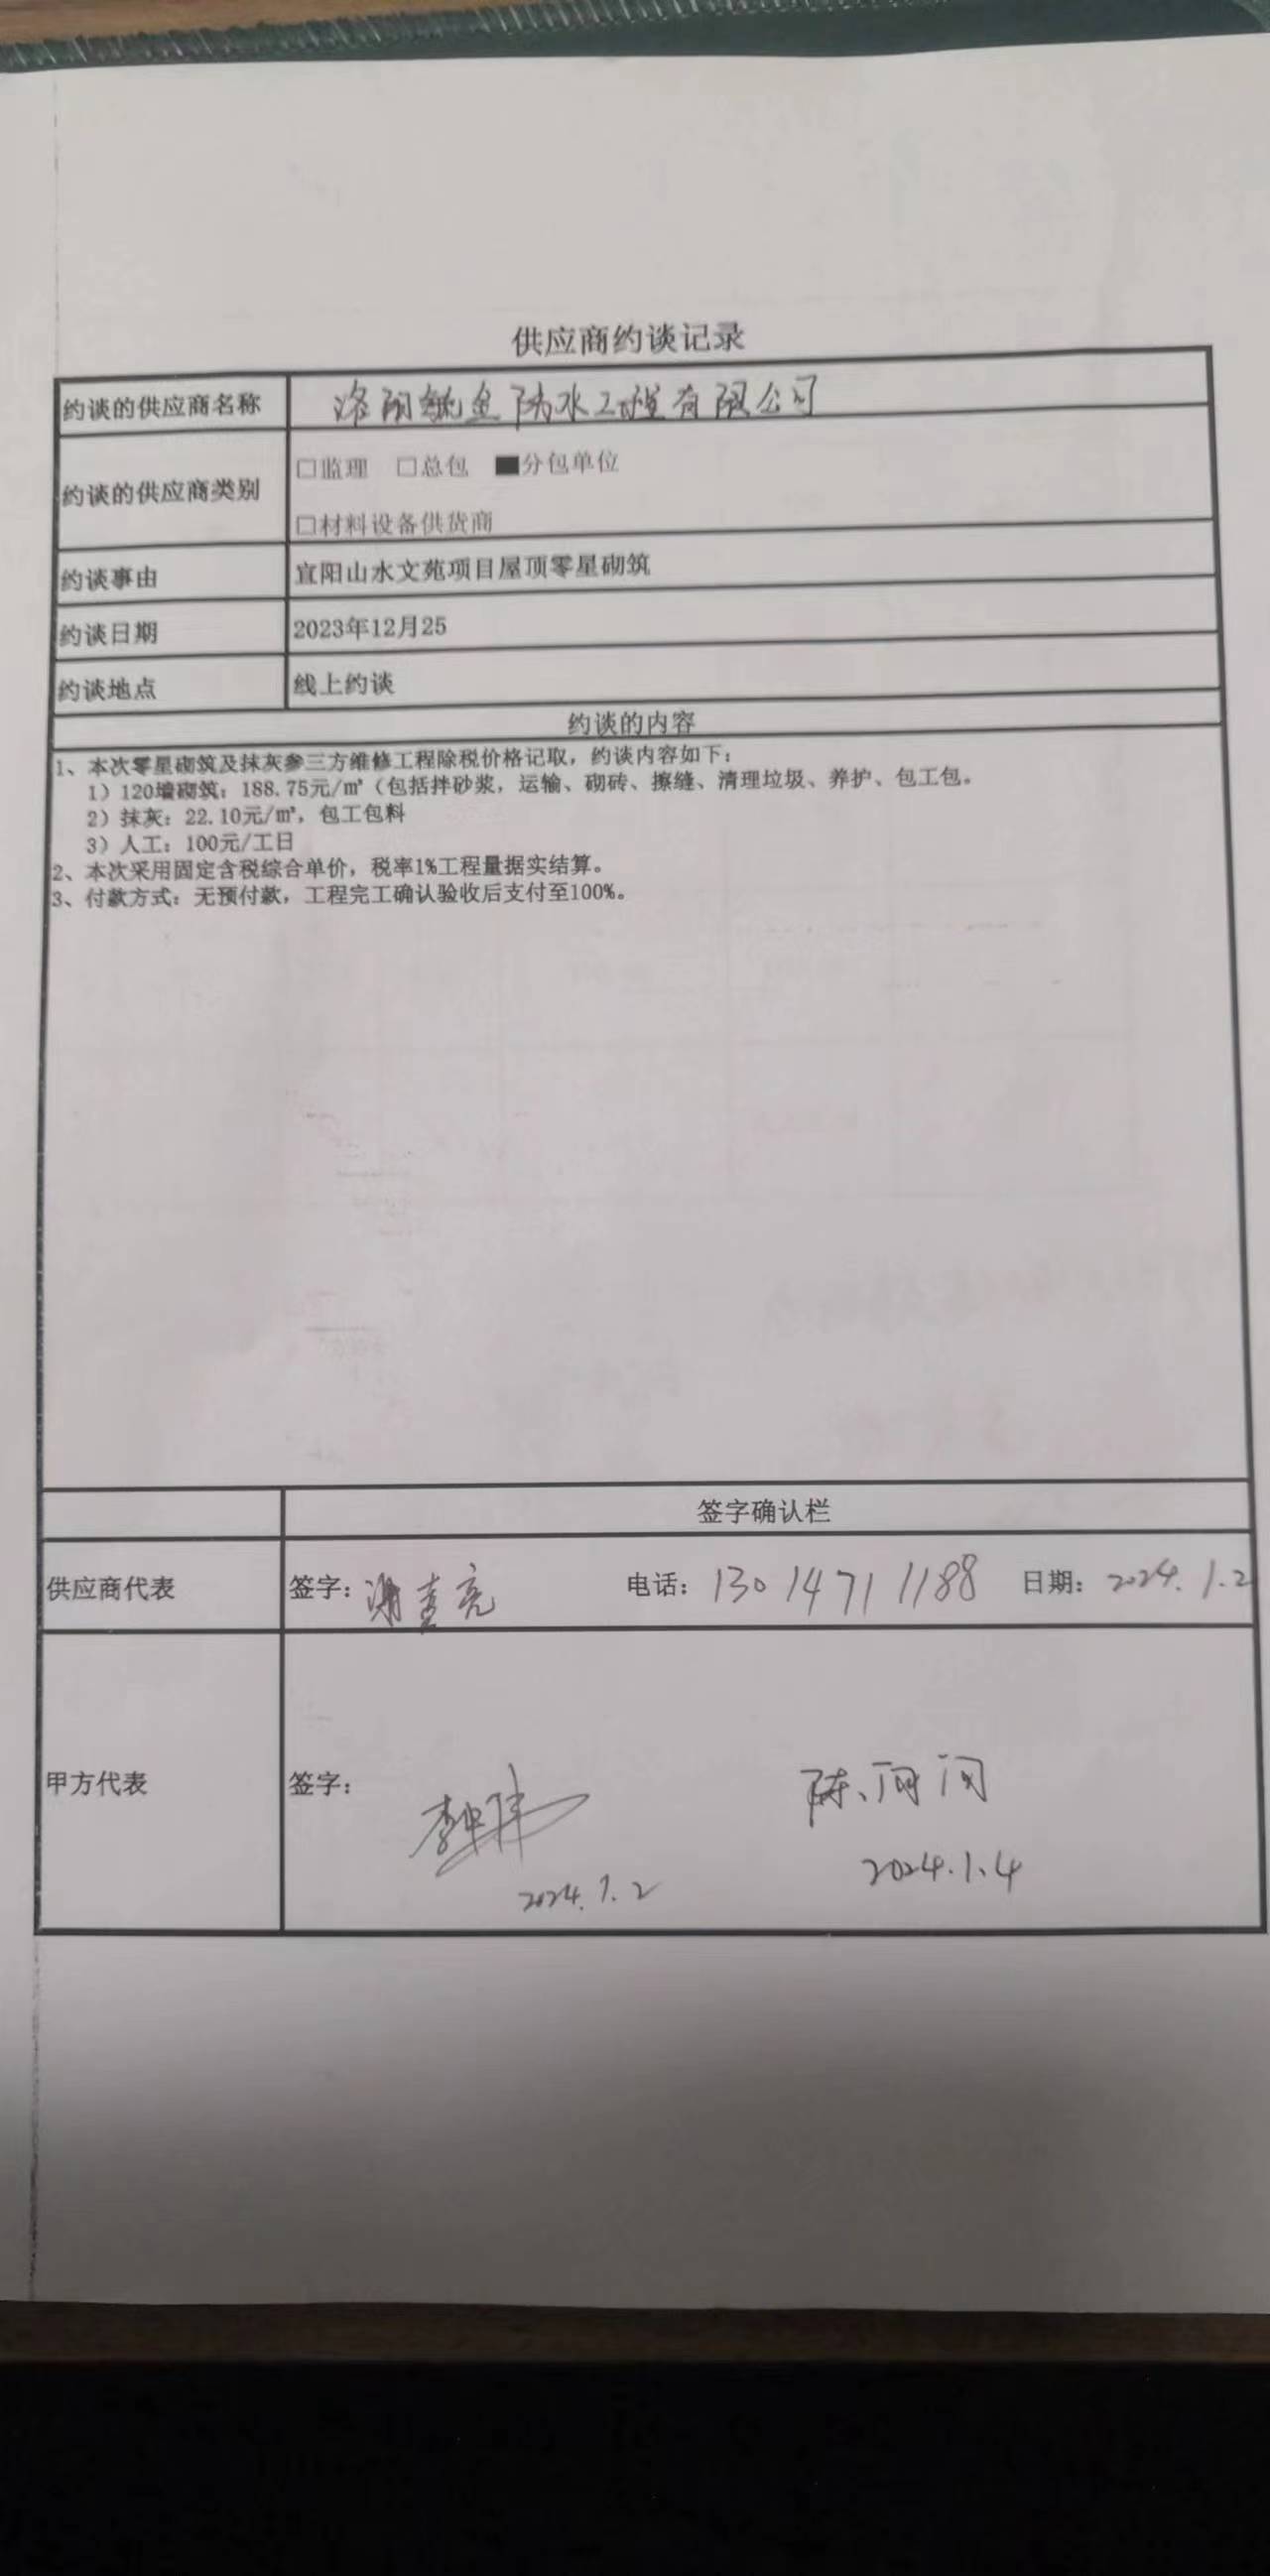 供应商约谈记录
约谈的供应商名称 洛阳鱿鱼防水工程有限公司
约谈的供应商类别 □监理 □总包 ■分包单位
□材料设备供货商
约谈事由 宜阳山水文苑项目屋顶零星砌筑
约谈日期 2023年12月25
约谈地点 线上约谈
约谈的内容
1、本次零星砌筑及抹灰参三方维修工程除税价格记取，约谈内容如下：
1）120墙砌筑：188.75元/㎡（包括拌砂浆，运输、砌砖、擦缝、清理垃圾、养护、包工包。
2）抹灰：22.10元/㎡，包工包料
3）人工：100元/工日
2、本次采用固定含税综合单价，税率1%工程量据实结算。
3、付款方式：无预付款，工程完工确认验收后支付至100%。
签字确认栏
供应商代表 签字： 电话：13014711188 日期：2024.1.2
甲方代表 签字：
2024.1.2 2024.1.4